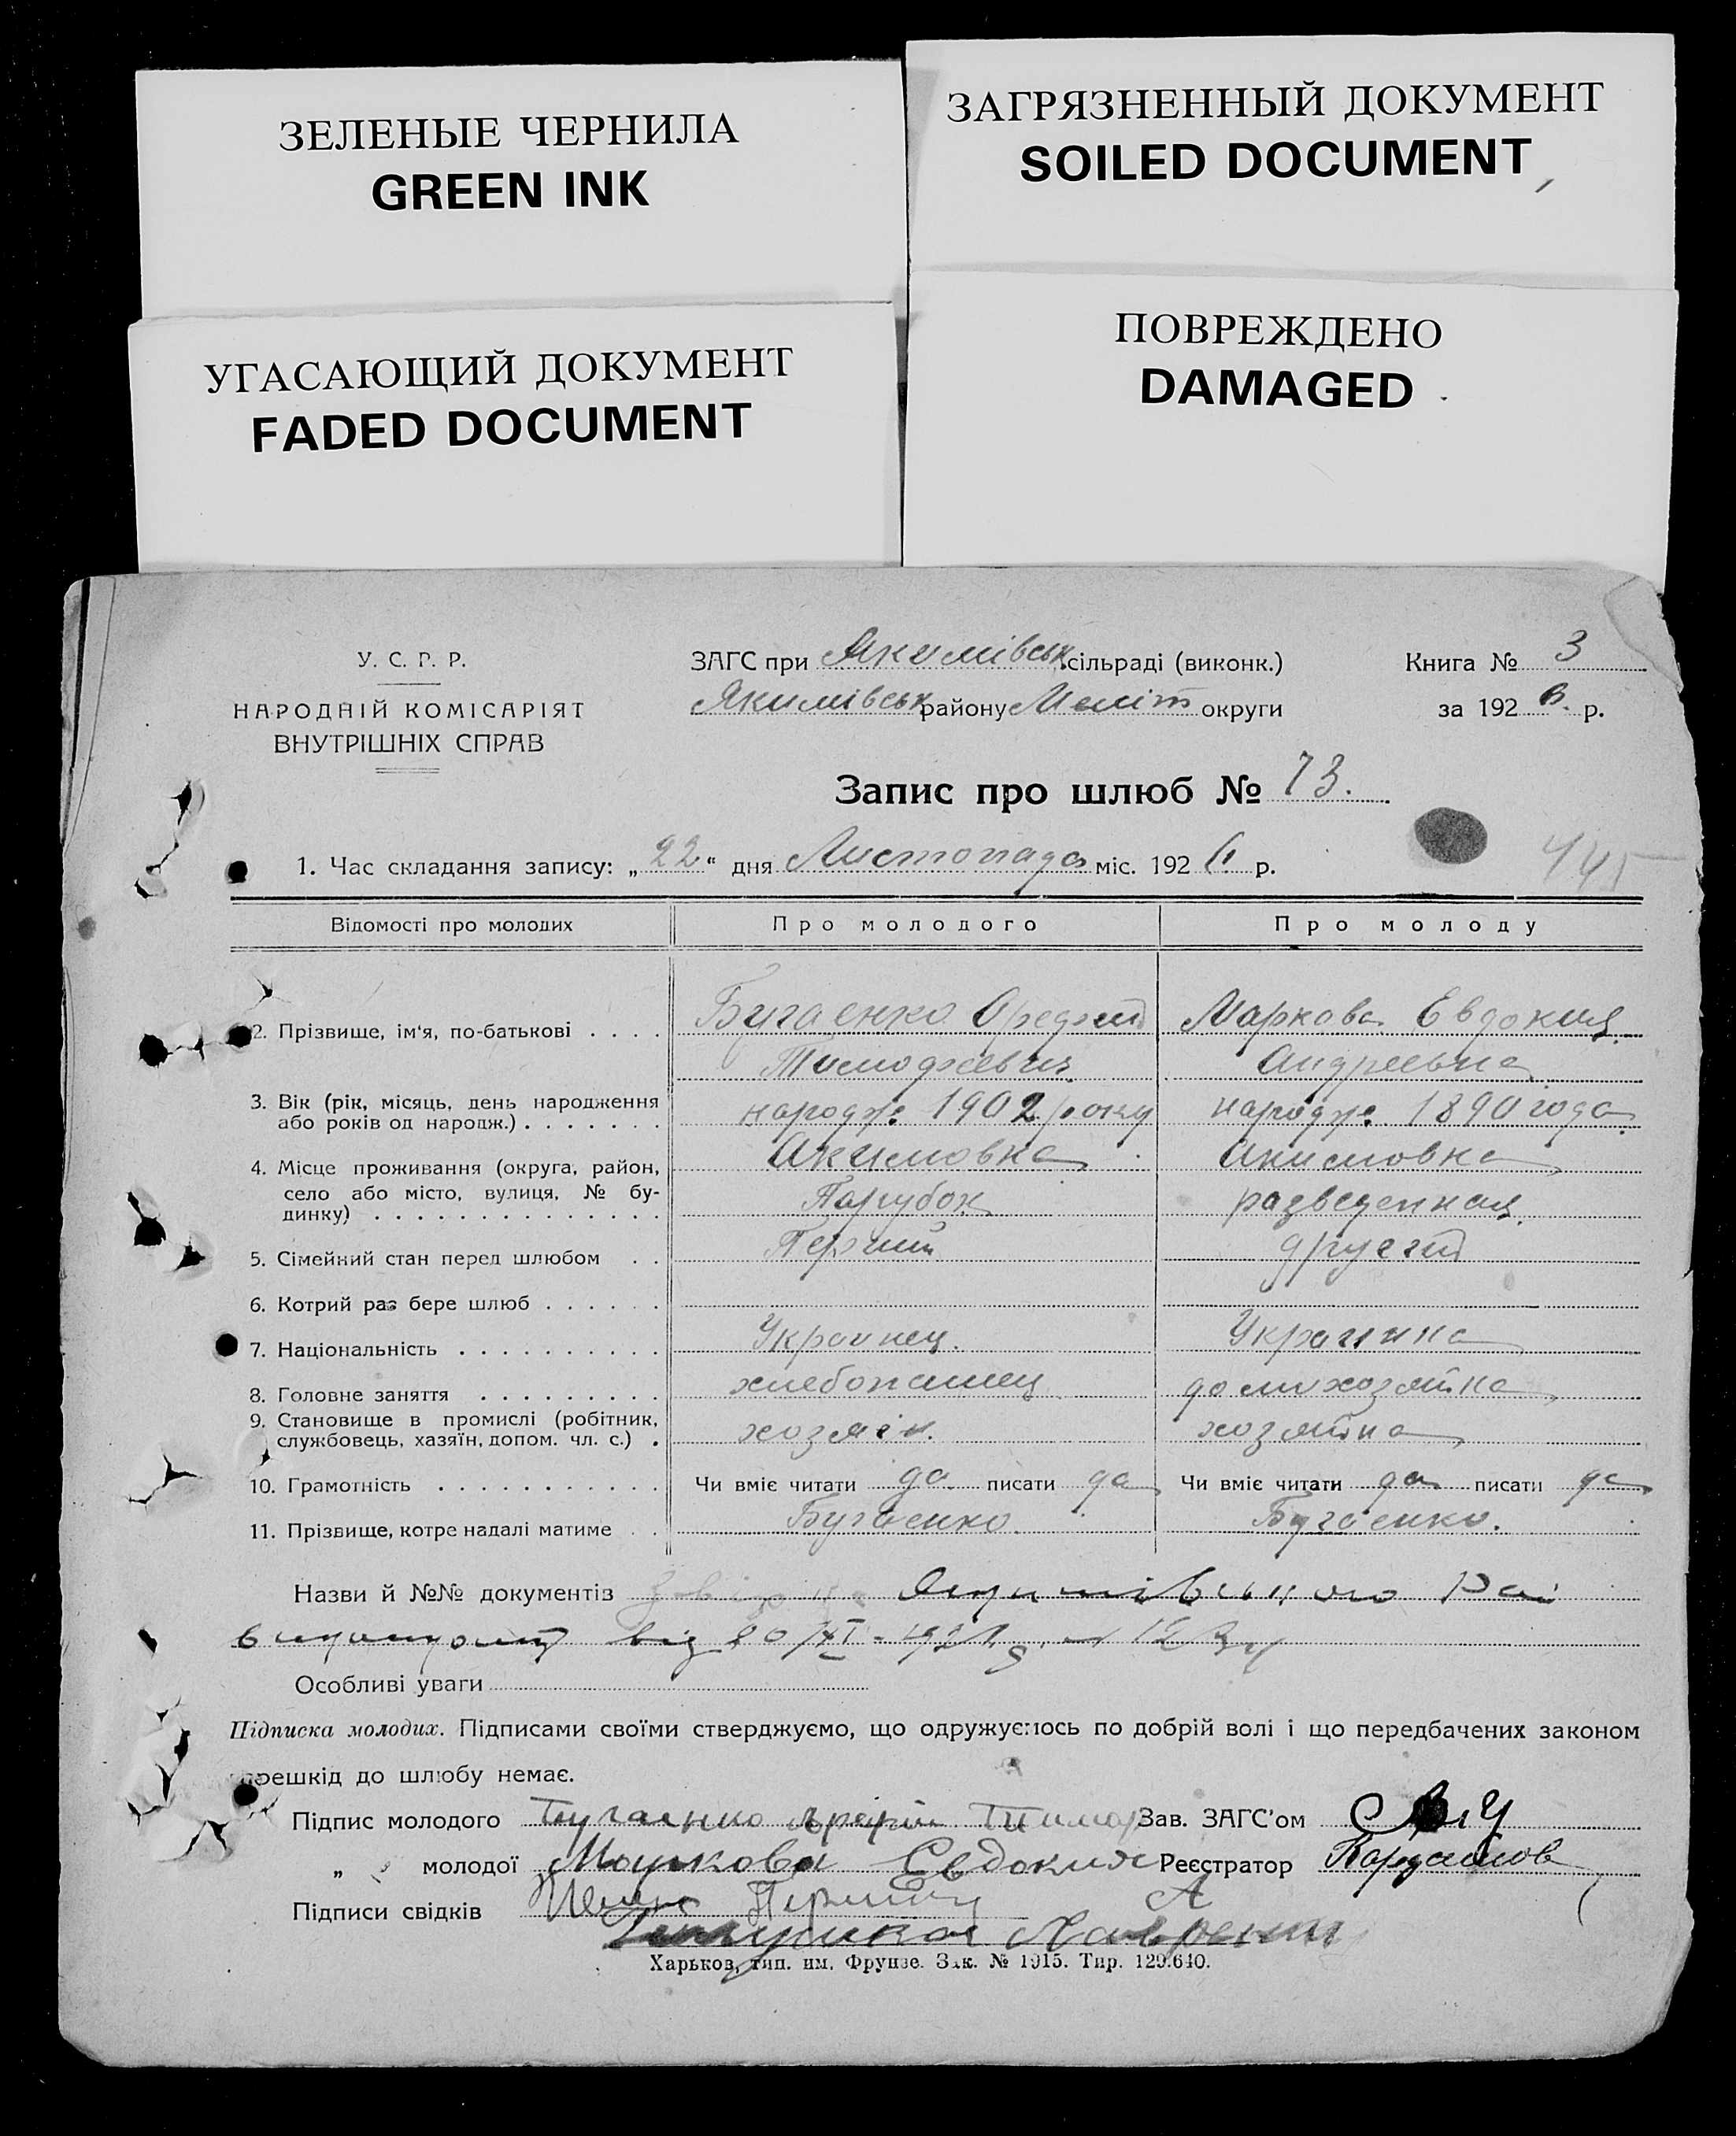 ЗЕЛЕНЫЕ ЧЕРНИЛА
GREEN INK
ЗАГРЯЗНЕННЫЙ ДОКУМЕНТ
SOILED DOCUMENT
УГАСАЮЩИЙ ДОКУМЕНТ
FADED DOCUMENT
ПОВРЕЖДЕНО
DAMAGED
У. С. Р. Р.
НАРОДНІЙ КОМІСАРІЯТ
ВНУТРІШНІХ СПРАВ
ЗАГС при Якимівськ. сільраді (виконк.)
Якимівськ району Меліт округи
Книга № 3
за 192 р.
Запис про шлюб № 73.
1. Час складання запису: „22“ дня Листопада міс. 192 р.
445
Відомості про молодих Про молодого Про молоду
2. Прізвище, ім'я, по-батькові . . . . Бугаенко Маркова Евдокия
Тимофеевич Андреевна
3. Вік (рік, місяць, день народження народж. 1902 року народж. 1890 года
або років од народж.) . . . . . . .
4. Місце проживання (округа, район, Акимовка Акимовка
село або місто, вулиця, № бу- Парубок разведенная
динку) . . . . . . . . . . . . . .
5. Сімейний стан перед шлюбом . . Перший другий
6. Котрий раз бере шлюб . . . . . .
7. Національність . . . . . . . . . . Украинец. Украинка
8. Головне заняття . . . . . . . . . хлебопашец домохозяйка
9. Становище в промислі (робітник, хозяїн. хозяйка
службовець, хазяїн, допом. чл. с.) .
10. Грамотність . . . . . . . . . . . Чи вміє читати да писати да Чи вміє читати да писати да
11. Прізвище, котре надалі матиме . . Бугаенко Бугаенко.
Назви й №№ документів Якимівського Рай
від 20/XI
Особливі уваги
Підписка молодих. Підписами своїми стверджуємо, що одружуємось по добрій волі і що передбачених законом
перешкід до шлюбу немає.
Підпис молодого Бугаенко Зав. ЗАГС'ом
„ молодої Маркова Евдокия Реєстратор
Підписи свідків
Харьков, тип. им. Фрунзе. Зак. № 1915. Тир. 129.640.